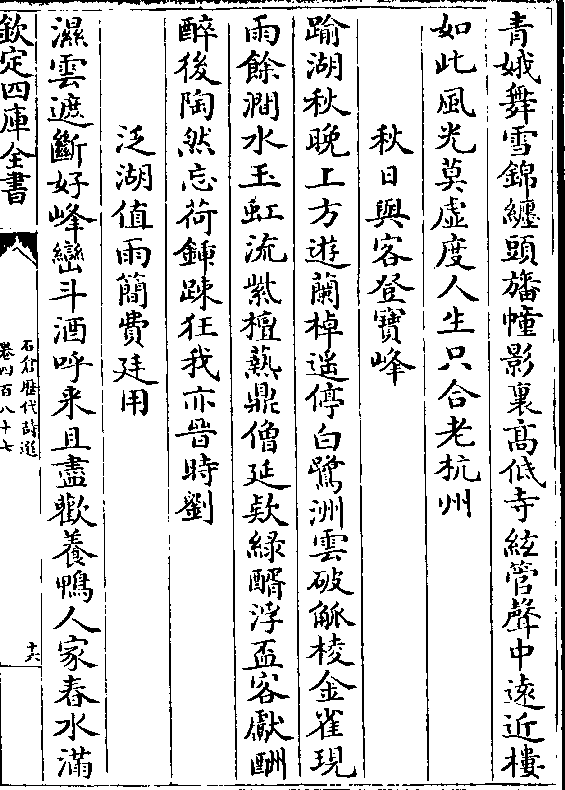 青娥舞雪錦纏頭旛幢影裏高低寺絃管聲中遠近樓
如此風光莫虛度人生只合老杭州
秋日與客登寶峰
踰湖秋晩上方遊蘭棹遥停白鷺洲雲破觚棱金雀現
雨餘澗水玉虹流紫檀爇鼎僧延欵綠醑浮盃客獻酬
醉後陶然忘荷鍤踈狂我亦晉時劉
泛湖值雨簡費廷用
濕雲遮斷好峰巒斗酒呼来且盡歡養鴨人家春水滿
欽定四庫全書
石倉歴代詩選
卷四百八十七
十六